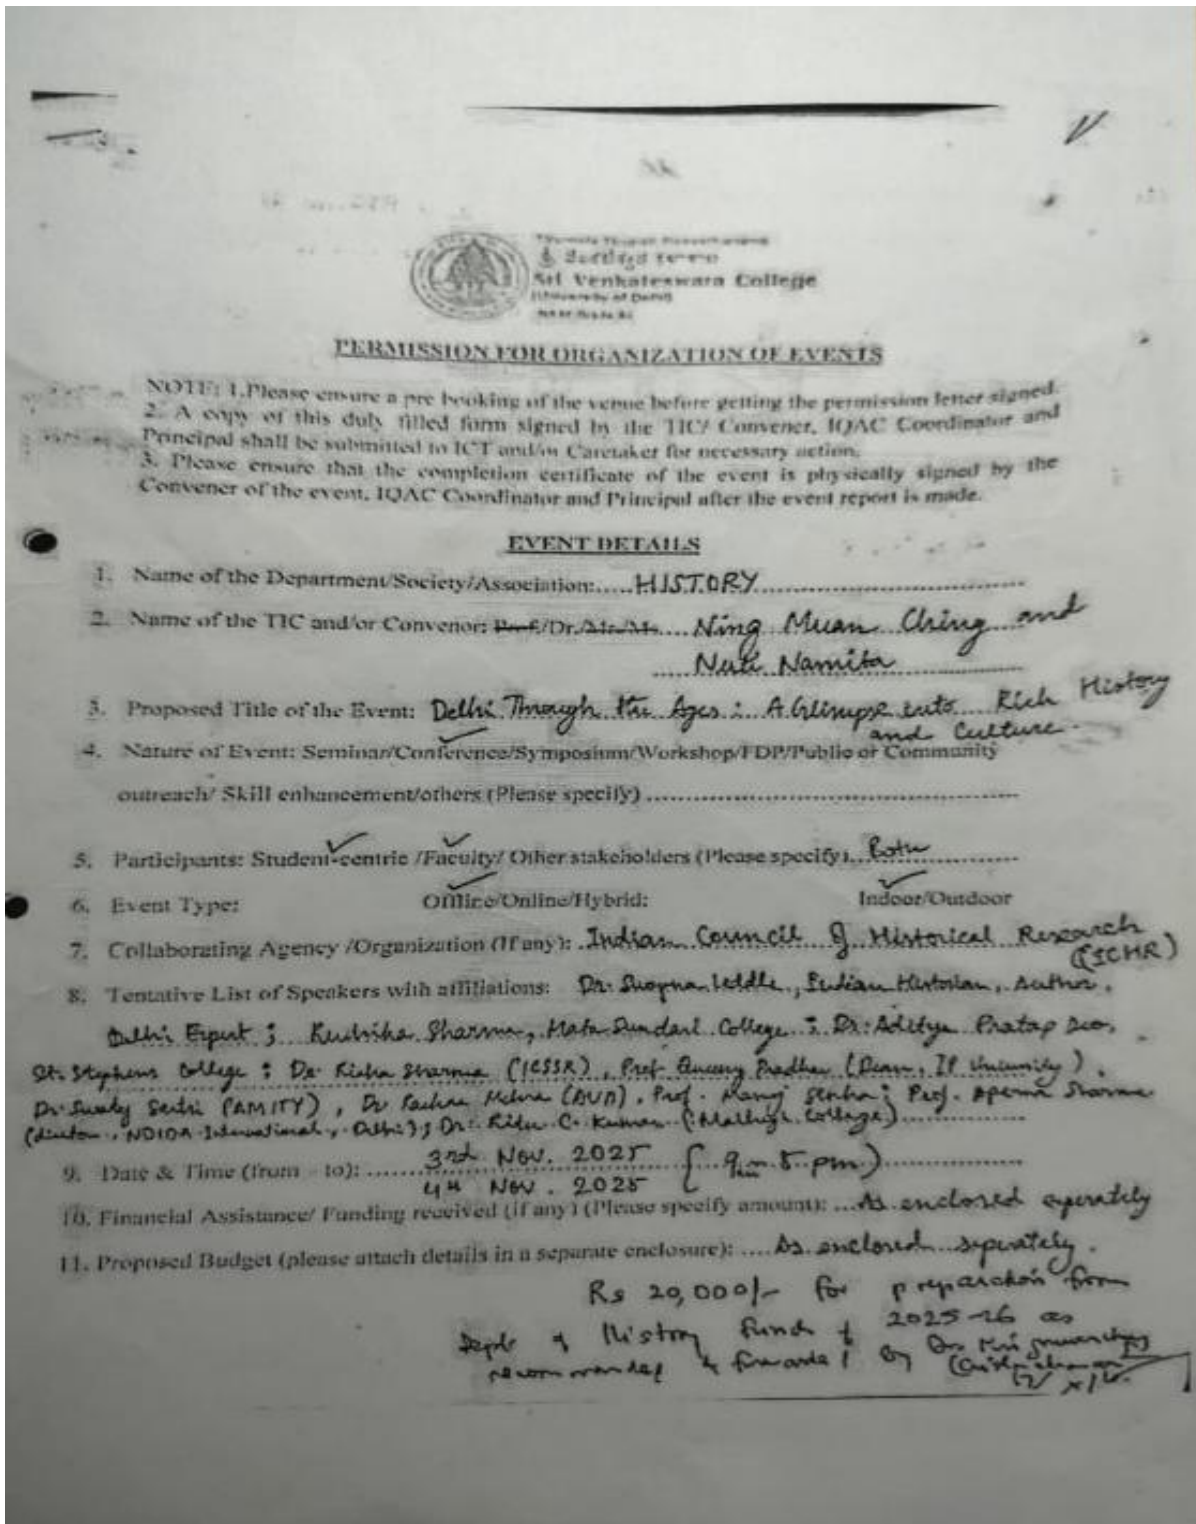 Sri Venkateswara College
(University of Delhi)
PERMISSION FOR ORGANIZATION OF EVENTS
NOTE: 1.Please ensure a pre booking of the venue before getting the permission letter signed.
2. A copy of this duly filled form signed by the TIC/ Convener, IQAC Coordinator and
Principal shall be submitted to ICT and/or Caretaker for necessary action.
3. Please ensure that the completion certificate of the event is physically signed by the
Convener of the event, IQAC Coordinator and Principal after the event report is made.
EVENT DETAILS
1. Name of the Department/Society/Association:.....HISTORY
2. Name of the TIC and/or Convenor: Prof/Dr./Mr./Ms.... Ning Muan Ching and
Namita
3. Proposed Title of the Event: Delhi Through the Ages : A Glimpse into Rich History
and Culture.
4. Nature of Event: Seminar/Conference/Symposium/Workshop/FDP/Public or Community
outreach/ Skill enhancement/others (Please specify)
5. Participants: Student-centric /Faculty/ Other stakeholders (Please specify)...Both
6. Event Type: Offline/Online/Hybrid: Indoor/Outdoor
7. Collaborating Agency /Organization (If any): Indian Council of Historical Research
(ICHR)
8. Tentative List of Speakers with affiliations: Dr. Swapna Liddle, Indian Historian, Author,
Delhi Expert ; Sharma, Mata Sundari College ; Dr. Aditya Pratap Deo,
St. Stephens College ; Dr Richa Sharma (ICSSR), Prof. Pradhan (Dean, IP University),
Dr. (AMITY), Dr Mehra (AUD), Prof. Manoj Sinha ; Prof. Aparna Sharma
(director, NOIDA International, Delhi) ; Dr. Ritu C. Kumar ( College)
9. Date & Time (from - to): 3rd Nov. 2025 ( 9am-5 pm)
4th Nov. 2025
10. Financial Assistance/ Funding received (if any) (Please specify amount): ...As enclosed seperately
11. Proposed Budget (please attach details in a separate enclosure): ....As enclosed seperately.
Rs 20,000/- for preparation from
Dept of History fund of 2025-26 as
recommended & forwarded by Dr.